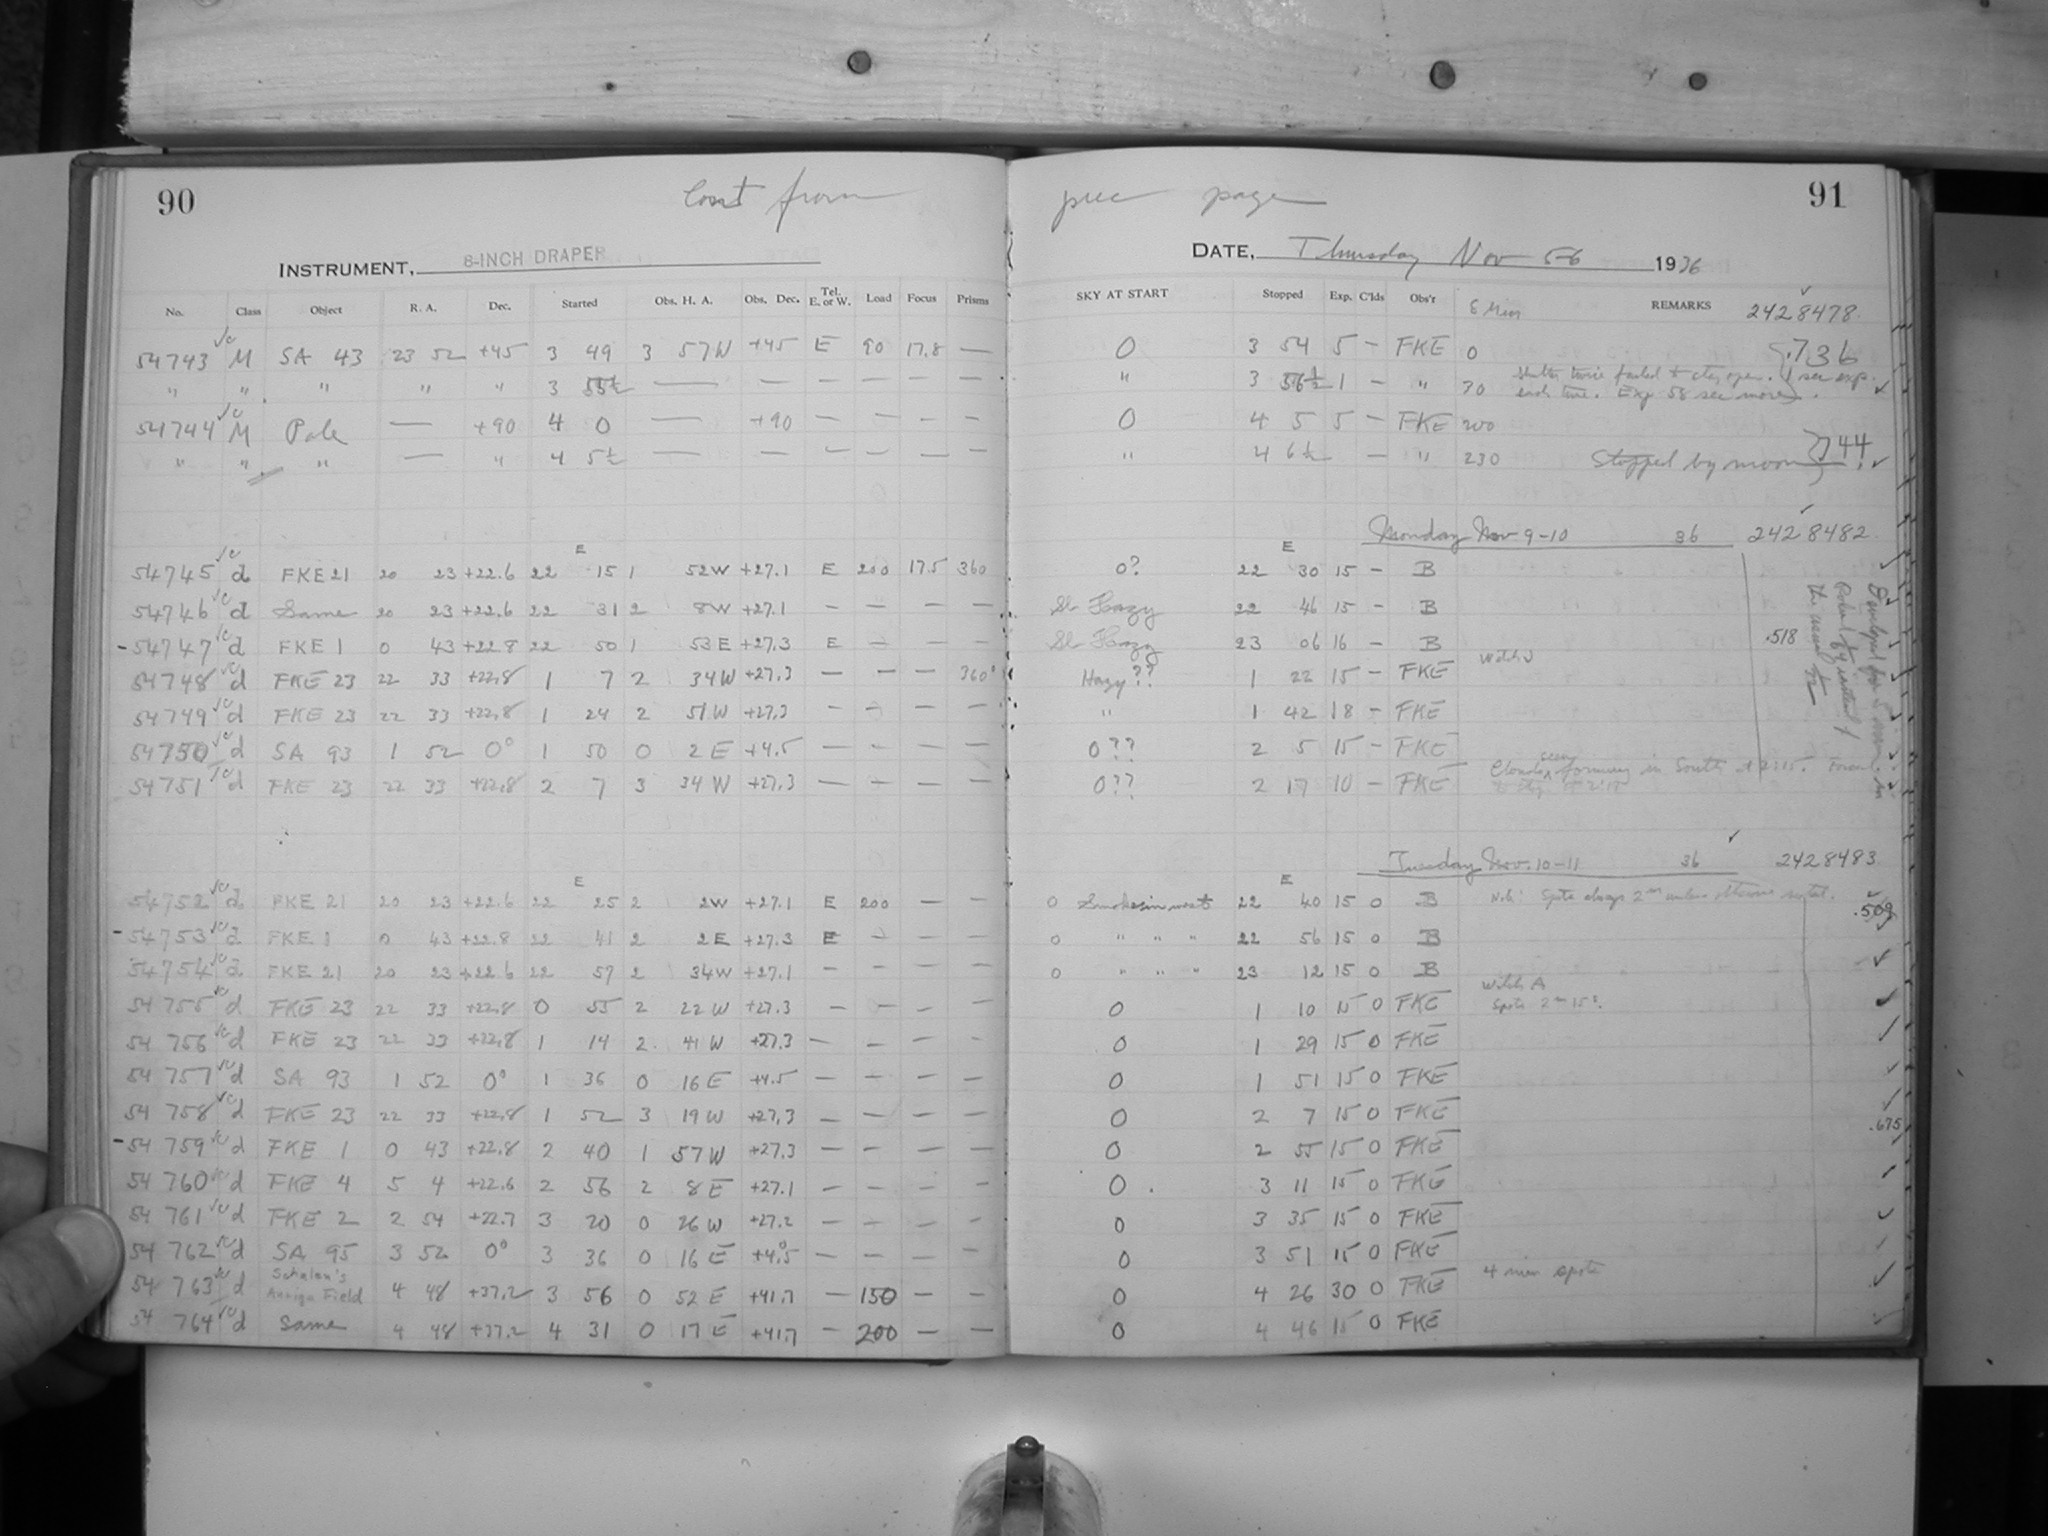 90 Cont from prec page 91
INSTRUMENT, 8-INCH DRAPER DATE, Thursday Nov 5-6 1936
No. Class Object R. A. Dec. Started Obs. H. A. Obs. Dec. Tel. E. or W. Load Focus Prisms SKY AT START Stopped Exp. C'lds Obs'r REMARKS 2428478
54743 M SA 43 23 52 +45 3 49 3 57W +45 E 90 17.8 — 0 3 54 5 – FKE 0 .736
" " " " " 3 55½ — — — — — — " 3 56½ 1 – " 70 Shutter twice failed to stay open. (1 sec exp.
each time. Exp 58 sec more).
54744 M Pole — +90 4 0 — +90 — — — — 0 4 5 5 – FKE 200 .744
" " " — " 4 5½ — — — — — — " 4 6½ – " 230 Stopped by moon
Monday Nov 9-10 36 2428482
54745 d FKE 21 20 23 +22.6 22 E 15 1 52W +27.1 E 200 17.5 360 0? 22 E 30 15 – B
54746 d Same 20 23 +22.6 22 31 2 8W +27.1 — — — — Sl. Hazy 22 46 15 – B
-54747 d FKE 1 0 43 +22.8 22 50 1 53 E +27.3 E — — — Sl. Hazy 23 06 16 – B .518
54748 d FKE 23 22 33 +22.8 1 7 2 34W +27.3 — — — 360° Hazy?? 1 22 15 – FKE
54749 d FKE 23 22 33 +22.8 1 24 2 51W +27.3 — — — — " 1 42 18 – FKE
54750 d SA 93 1 52 0° 1 50 0 2 E +4.5 — — — — 0?? 2 5 15 – FKE
54751 d FKE 23 22 33 +22.8 2 7 3 34 W +27.3 — — — — 0?? 2 17 10 – FKE Clouds seen forming in South at 2:15.
Tuesday Nov. 10-11 36 2428483
54752 d FKE 21 20 23 +22.6 22 E 25 2 2W +27.1 E 200 — — 0 Smoke in west 22 E 40 15 0 B Note: Spots always 2m unless otherwise noted. .509
-54753 d FKE 1 0 43 +22.8 22 41 2 2E +27.3 E — — — 0 " " " 22 56 15 0 B
54754 d FKE 21 20 23 +22.6 22 57 2 34W +27.1 — — — — 0 " " " 23 12 15 0 B
54755 d FKE 23 22 33 +22.8 0 55 2 22 W +27.3 — — — — 0 1 10 15 0 FKE Spots 2m 15s.
54756 d FKE 23 22 33 +22.8 1 14 2 41 W +27.3 — — — — 0 1 29 15 0 FKE
54757 d SA 93 1 52 0° 1 36 0 16 E +4.5 — — — — 0 1 51 15 0 FKE
54758 d FKE 23 22 33 +22.8 1 52 3 19 W +27.3 — — — — 0 2 7 15 0 FKE
-54759 d FKE 1 0 43 +22.8 2 40 1 57W +27.3 — — — — 0 2 55 15 0 FKE .675
54760 d FKE 4 5 4 +22.6 2 56 2 8 E +27.1 — — — — 0 3 11 15 0 FKE
54761 d FKE 2 2 54 +22.7 3 20 0 26 W +27.2 — — — — 0 3 35 15 0 FKE
54762 d SA 95 3 52 0° 3 36 0 16 E +4.5 — — — — 0 3 51 15 0 FKE
54763 d Schalen's Auriga Field 4 48 +37.2 3 56 0 52 E +41.7 — 150 — — 0 4 26 30 0 FKE 4 min spots
54764 d Same 4 48 +37.2 4 31 0 17 E +41.7 — 200 — — 0 4 46 15 0 FKE